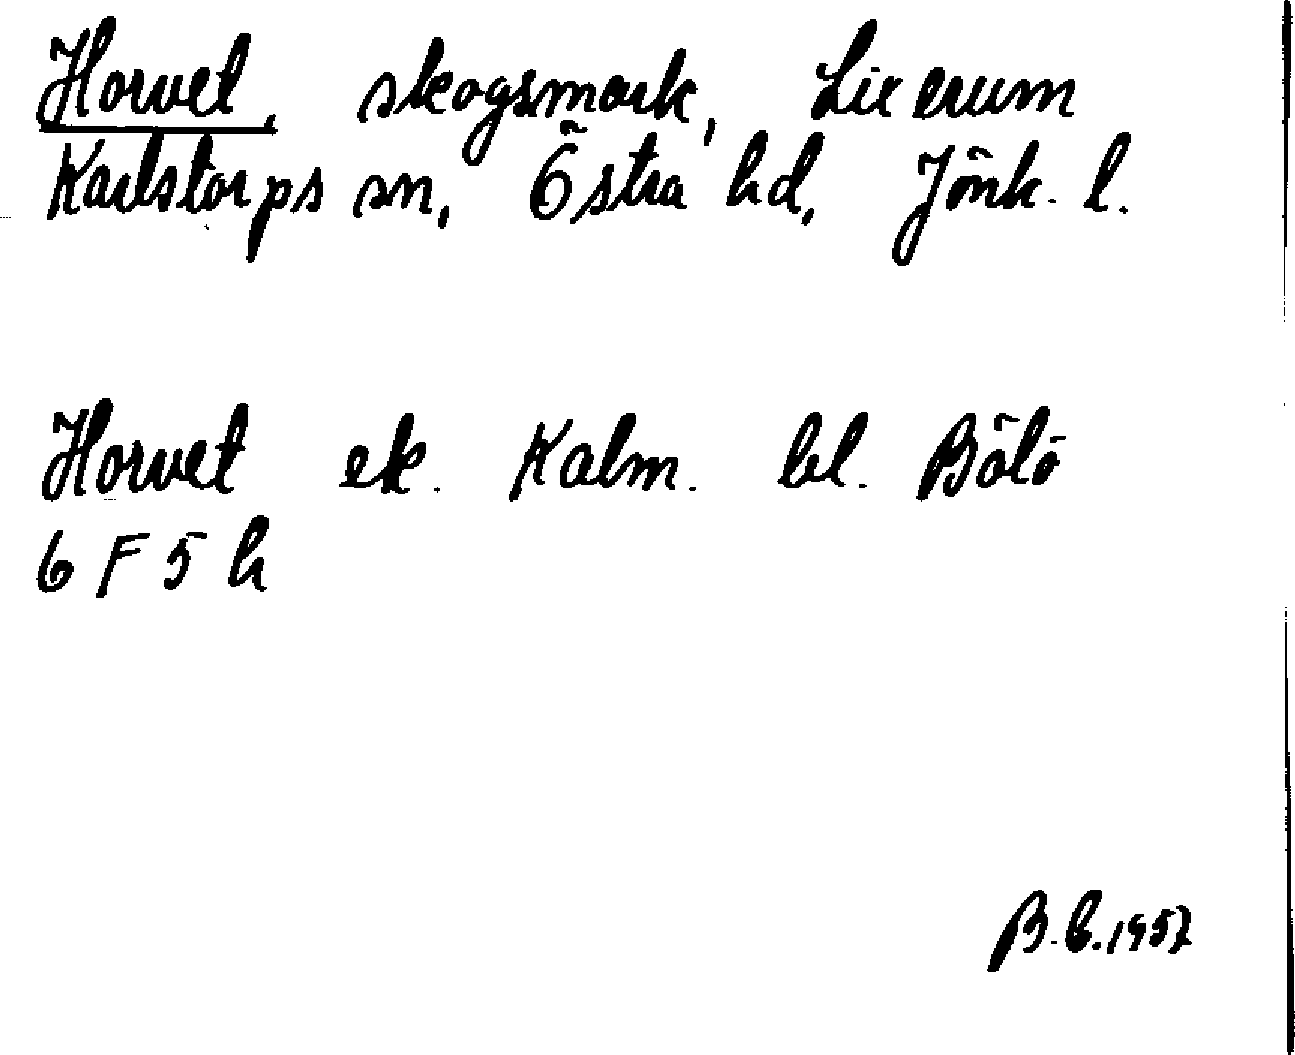 Horvet, skogsmark, Lixerum
Karlstorps sn, Östra hd, Jönk. l.
Horvet ek. Kalm. bl. Bölö
6 F 5 h
B.C. 1957